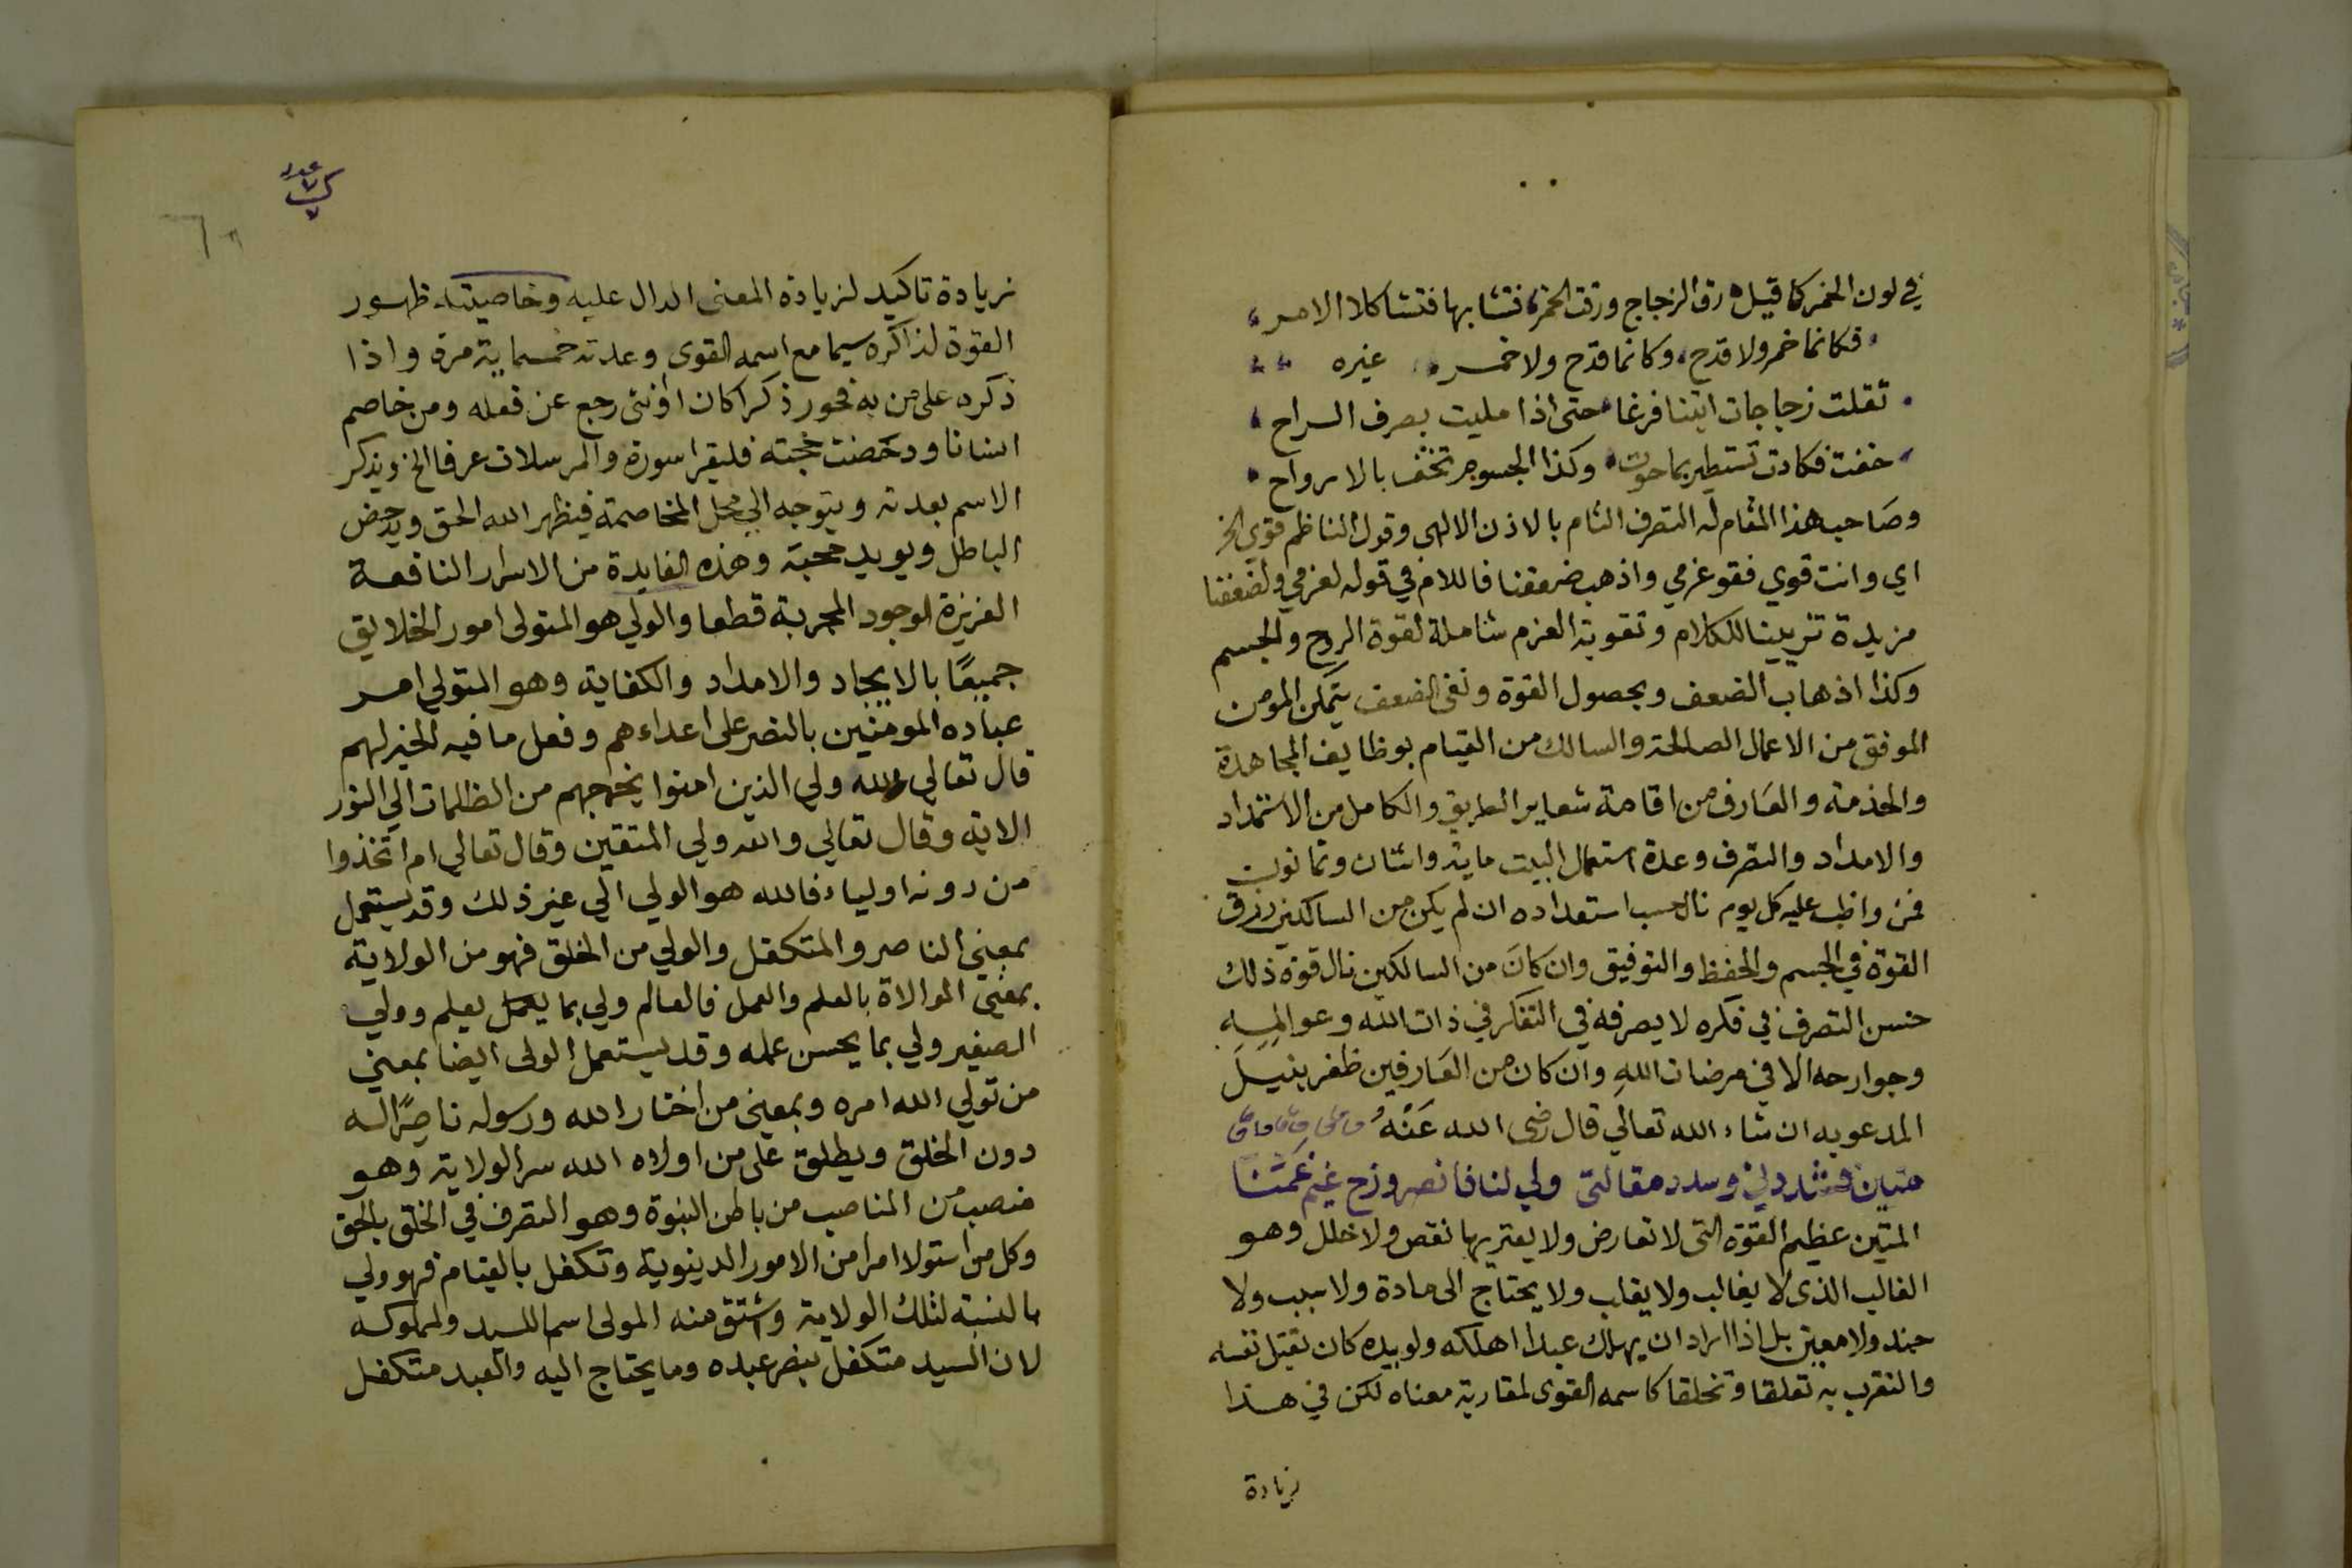 في لون الخمر كما قيل رق الزجاج ورقت الخمر فتشابها فتشاكلا الامر
فكانما خمر ولا قدح وكانما قدح ولا خمر غيره
ثقلت زجاجات اتتنا فرغا حتى اذا مليت بصرف الراح
خفت فكادت تستطير بما حوت وكذا الجسوم تخف بالارواح
وصاحب هذا المقام له التصرف التام بالاذن الالهي وقول الناظم قوي الخ
اي وانت قوي فقو عزمي واذهب ضعفنا فاللام في قوله لعزمي ولضعفنا
مزيدة تزيينا للكلام وتقوية العزم شاملة لقوة الروح والجسم
وكذا اذهاب الضعف وبحصول القوة ونفى الضعف يتمكن المومن
الموفق من الاعمال الصالحة والسالك من القيام بوظايف المجاهدة
والخدمة والعارف من اقامة شعاير الطريق والكامل من الاستمداد
والامداد والتصرف وعدة استعمال البيت ماية واثنان وثمانون
فمن واظب عليه كل يوم نال حسب استعداده ان لم يكن من السالكين رزق
القوة في الجسم والحفظ والتوفيق وان كان من السالكين نال قوة ذلك
حسن التصرف في فكره لا يصرفه في التفكر في ذات الله وعوالمه
وجوارحه الا في مرضات الله وان كان من العارفين ظفر بنيل
المدعو به ان شاء الله تعالي قال رضى الله عنه
متين فشدد لي وسدد مقالتى ولي لنا فانصر وزح غيم غمتنا
المتين عظيم القوة التى لا تعارض ولا يعتريها نقص ولا خلل وهو
الغالب الذى لا يغالب ولا يغلب ولا يحتاج الى مادة ولا سبب ولا
جند ولا معين بل اذا اراد ان يهلك عبدا اهلكه ولو بيده كان يقتل نفسه
والتقرب به تعلقا وتخلقا كاسمه القوى لمقاربة معناه لكن في هذا
زيادة
زيادة تاكيد لزيادة المعنى الدال عليه وخاصيته ظهور
القوة لذاكره سيما مع اسمه القوى وعدته خمسماية مرة واذا
ذكره على من به فجور ذكرا كان او نثى رجع عن فعله ومن خاصم
انسانا ودحضت حجته فليقرا سورة والمرسلات عرفا الخ ويذكر
الاسم بعدته ويتوجه الي محل المخاصمة فيظهر الله الحق ويدحض
الباطل ويويد محبة وهذه الفايدة من الاسرار النافعة
العزيزة الوجود المجربة قطعا والولي هو المتولى امور الخلايق
جميعًا بالايجاد والامداد والكفاية وهو المتولي امر
عباده المومنين بالنصر على اعداءهم وفعل ما فيه الخير لهم
قال تعالي الله ولي الذين امنوا يخرجهم من الظلمات الي النور
الاية وقال تعالي والله ولي المتقين وقال تعالي ام اتخذوا
من دونه اولياء فالله هو الولي الي غير ذلك وقد يستعمل
بمعني الناصر والمتكفل والولي من الخلق فهو من الولاية
بمعني الموالاة بالعلم والعمل فالعالم ولي بما يعمل يعلم وولي
الصغير ولي بما يحسن عمله وقد يستعمل الولى ايضا بمعني
من تولي الله امره وبمعنى من اختار الله ورسوله ناصرًا له
دون الخلق ويطلق على من اولاه الله سر الولاية وهو
منصب من المناصب من باطن النبوة وهو التصرف في الخلق بالحق
وكل من استولا امرا من الامور الدينوية وتكفل بالقيام فهو ولي
بالنسبة لتلك الولاية واشتق منه المولى اسم للسيد ولمملوكه
لان السيد متكفل بنصر عبده وما يحتاج اليه والعبد متكفل